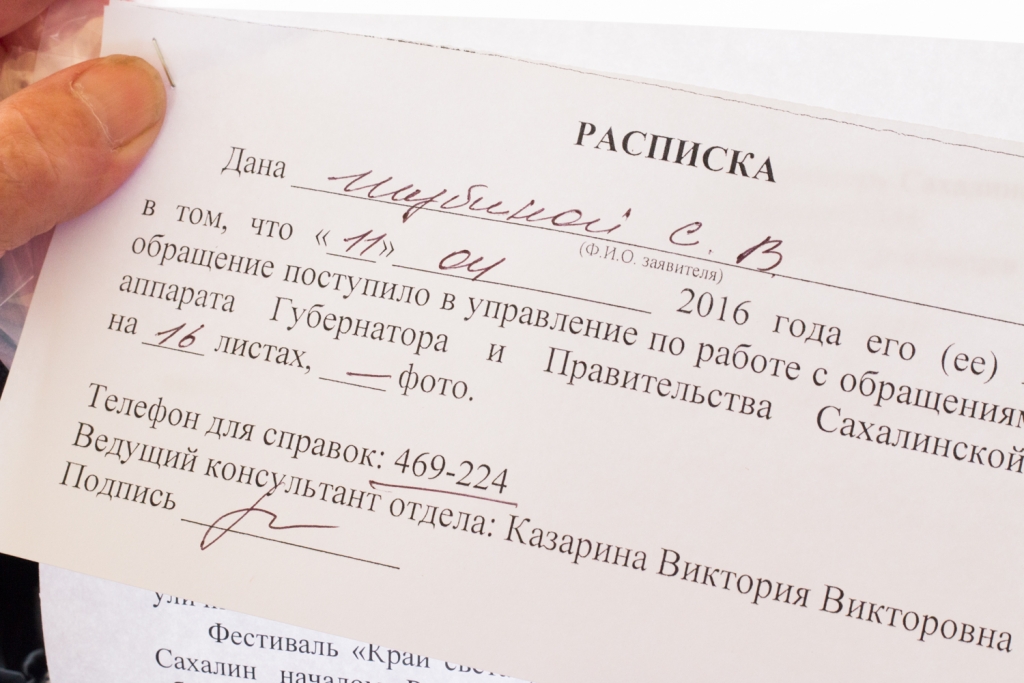 РАСПИСКА
Дана С. В.
(Ф.И.О. заявителя)
в том, что «11» 04 2016 года его (ее)
обращение поступило в управление по работе с обращениям
аппарата Губернатора и Правительства Сахалинской
на 16 листах, — фото.
Телефон для справок: 469-224
Ведущий консультант отдела: Казарина Виктория Викторовна
Подпись
Фестиваль «Край
Сахалин началом